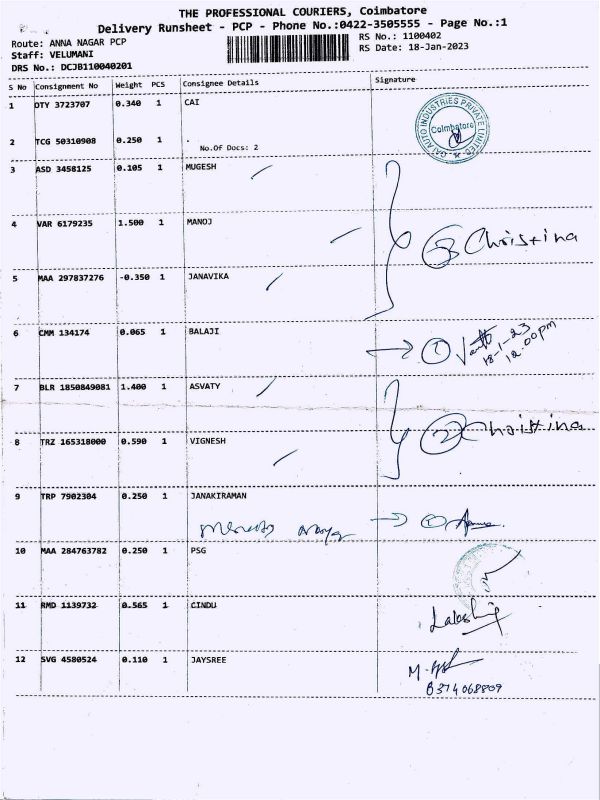 THE PROFESSIONAL COURIERS, Coimbatore
Delivery Runsheet - PCP - Phone No.:0422-3505555 - Page No.:1
Route: ANNA NAGAR PCP
RS No.: 1100402
Staff: VELUMANI
RS Date: 18-Jan-2023
DRS No.: DCJB110040201
S No Consignment No Weight PCS Consignee Details Signature
1 OTY 3723707 0.340 1 CAI
CAI AUTO INDUSTRIES PRIVATE LIMITED Coimbatore
2 TCG 50310908 0.250 1 .
No.Of Docs: 2
3 ASD 3458125 0.105 1 MUGESH
4 VAR 6179235 1.500 1 MANOJ
3 Christina
5 MAA 297837276 -0.350 1 JANAVIKA
6 CMM 134174 0.065 1 BALAJI
1
18-1-23
12.00pm
7 BLR 1850849081 1.400 1 ASVATY
2 Christina
8 TRZ 165318000 0.590 1 VIGNESH
9 TRP 7902304 0.250 1 JANAKIRAMAN
1
10 MAA 284763782 0.250 1 PSG
11 RMD 1139732 0.565 1 CINDU
12 SVG 4580524 0.110 1 JAYSREE
8374068809